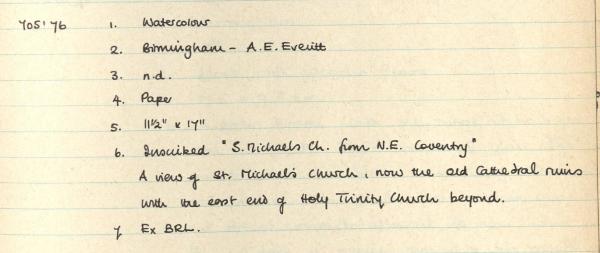 705'76 1. Watercolour
2. Birmingham - A.E. Everitt
3. n.d.
4. Paper
5. 11½" x 17"
6. Inscribed "S. Michaels Ch. from N.E. Coventry"
A view of St. Michael's Church, now the old Cathedral ruins
with the east end of Holy Trinity Church beyond.
7 Ex BRL.